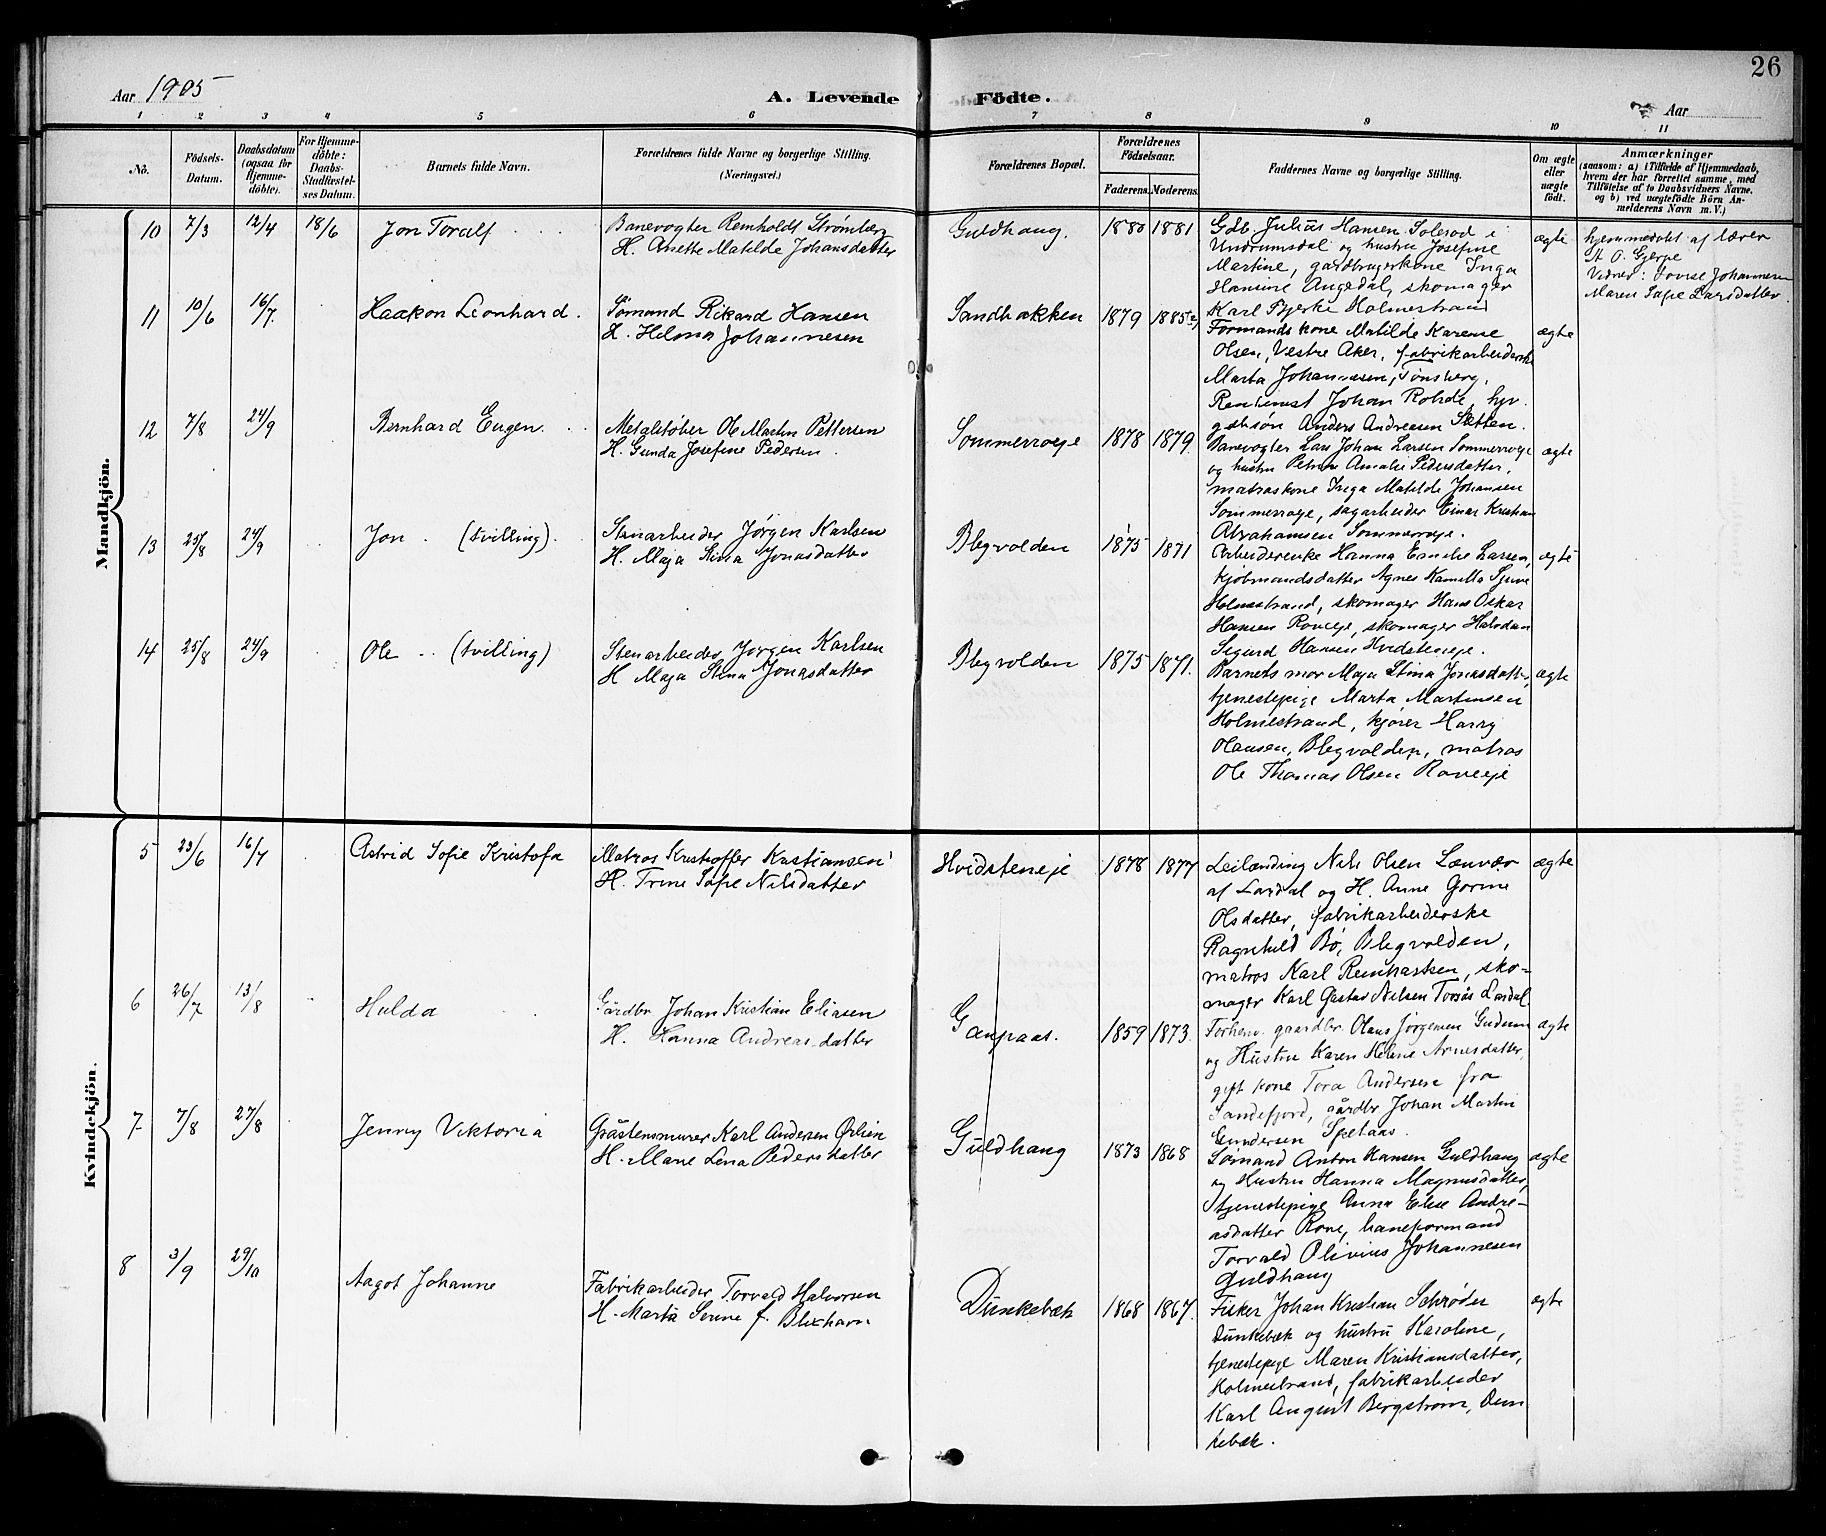 26
Aar 1905
A. Levende Födte.
Aar
1 2 3 4 5 6 7 8 9 10 11
No.
Födsels-Datum.
Daabsdatum (ogsaa for Hjemmedöbte).
For Hjemmedöbte: Daabs-Stadfæstelses Datum.
Barnets fulde Navn.
Forældrenes fulde Navne og borgerlige Stilling.
(Næringsvei.)
Forældrenes Bopæl.
Forældrenes Födselsaar.
Faderens. Moderens.
Faddernes Navne og borgerlige Stilling.
Om ægte eller uægte födt.
Anmærkninger
(saasom: a) i Tilfælde af Hjemmedaab, hvem der har forrettet samme, med Tilföielse af to Daabsvidners Navne, og b) ved uægtefödte Börn Anmelderens Navn m. V.)
Mandkjön.
10 7/3 12/4 18/6 Jon Toralf
Banevogter Reinholdt Strømberg
H. Anette Matilde Johansdatter
Guldhaug. 1880 1881
Gdb. Julius Hansen Solerød i
Undrumsdal og hustru Josefine
Martine, gardbrugerkone Inga
Hansine Angedal, skomager
Karl Fjerke Holmestrand
ægte
hjemmedøbt af lærer
A. O. Gjerpe
Vidner: Lovise Johannesen
Maren Sofie Larsdatter.
11 10/6 16/7 Haakon Leonhard.
Sømand Rikard Hansen
H. Helma Johannesen
Sandbakken 1879 1885
Formandskone Matilde Karense
Olsen, Vestre Aker, fabrikarbeiderske
Marta Johannesen, Tønsberg,
Johan Rohde,
Anders Andreasen Sletten.
ægte
12 7/8 24/9 Bernhard Eugen
Metalstøber Ole Martin Pettersen
H. Gunda Josefine Pedersen.
Sommerroeje 1878 1879
Banevogter Lars Johan Larsen Sommerroeje
og hustru Petrine Amalie Pedersdatter,
matroskone Inga Matilde Johansen
Sommerroeje, sagarbeider Einar Kristian
Abrahamsen Sommerroeje.
ægte
13 25/8 24/9 Jon (tvilling).
Stenarbeider Jørgen Karlsen
H. Maja Stina Jonasdatter
Blegvolden 1875 1871
Arbeiderenke Hanna Emelie Larsen,
kjøbmandsdatter Agnes Kamilla
Holmestrand, skomager Hans Oskar
Hansen Roveje, skomager Halvdan
Sigurd Hansen Hvidsteneje.
ægte
14 25/8 24/9 Ole (tvilling)
Stenarbeider Jørgen Karlsen
H. Maja Stina Jonasdatter
Blegvolden 1875 1871.
Barnets mor Maja Stina Jonasdatter,
tjenestepige Marta Martinsen
Holmestrand, kjører Harry
Olausen, Blegvolden, matros
Ole Thomas Olsen Roveeje
ægte
Kvindekjön.
5 23/6 16/7 Astrid Sofie Kristofa
Matros Kristoffer Kristiansen
H. Trine Sofie Nilsdatter
Hvidsteneje 1878 1877
Leilænding Nils Olsen Lænvær
af Lardal og H. Anne Gorine
Olsdatter, fabrikarbeiderske
Ragnhild Bø, Blegvolden,
matros Karl Reinhartsen, sko-
mager Karl Gustav Nilsen Lardal
ægte
6 26/7 13/8 Hulda
Gårdbr Johan Kristian Eliasen
H. Hanna Andreas.datter
Gaupaas. 1859 1873.
Forhenv. gaardbr. Olaus Jørgensen Gudum
og Hustru Karen Helene Arnesdatter,
gift kone Tora Andersen fra
Sandefjord, gårdbr Johan Martin
Gundersen Spetaas.
ægte
7 7/8 27/8 Jenny Viktoria
Gråstensmurer Karl Andersen Ørlien
H. Marie Lena Pedersdatter
Guldhaug 1873 1868
Sømand Anton Hansen Guldhaug
og Hustru Hanna Magnusdatter,
tjenestepige Anna Elise Andre-
asdatter Rove, baneformand
Torvald Olivius Johannesen
Guldhaug
ægte
8 3/9 29/10 Aagot Johanne
Fabrikarbeider Torvald Halvorsen
H. Marta Sevine f. Blixhavn
Dunkebæk 1868 1867.
Fisker Johan Kristian Schrøder
Dunkebæk og hustru Karoline,
tjenestepige Maren Kristiansdatter,
Holmestrand, fabrikarbeider
Karl August Bergstrøm, Dun
kebæk.
ægte